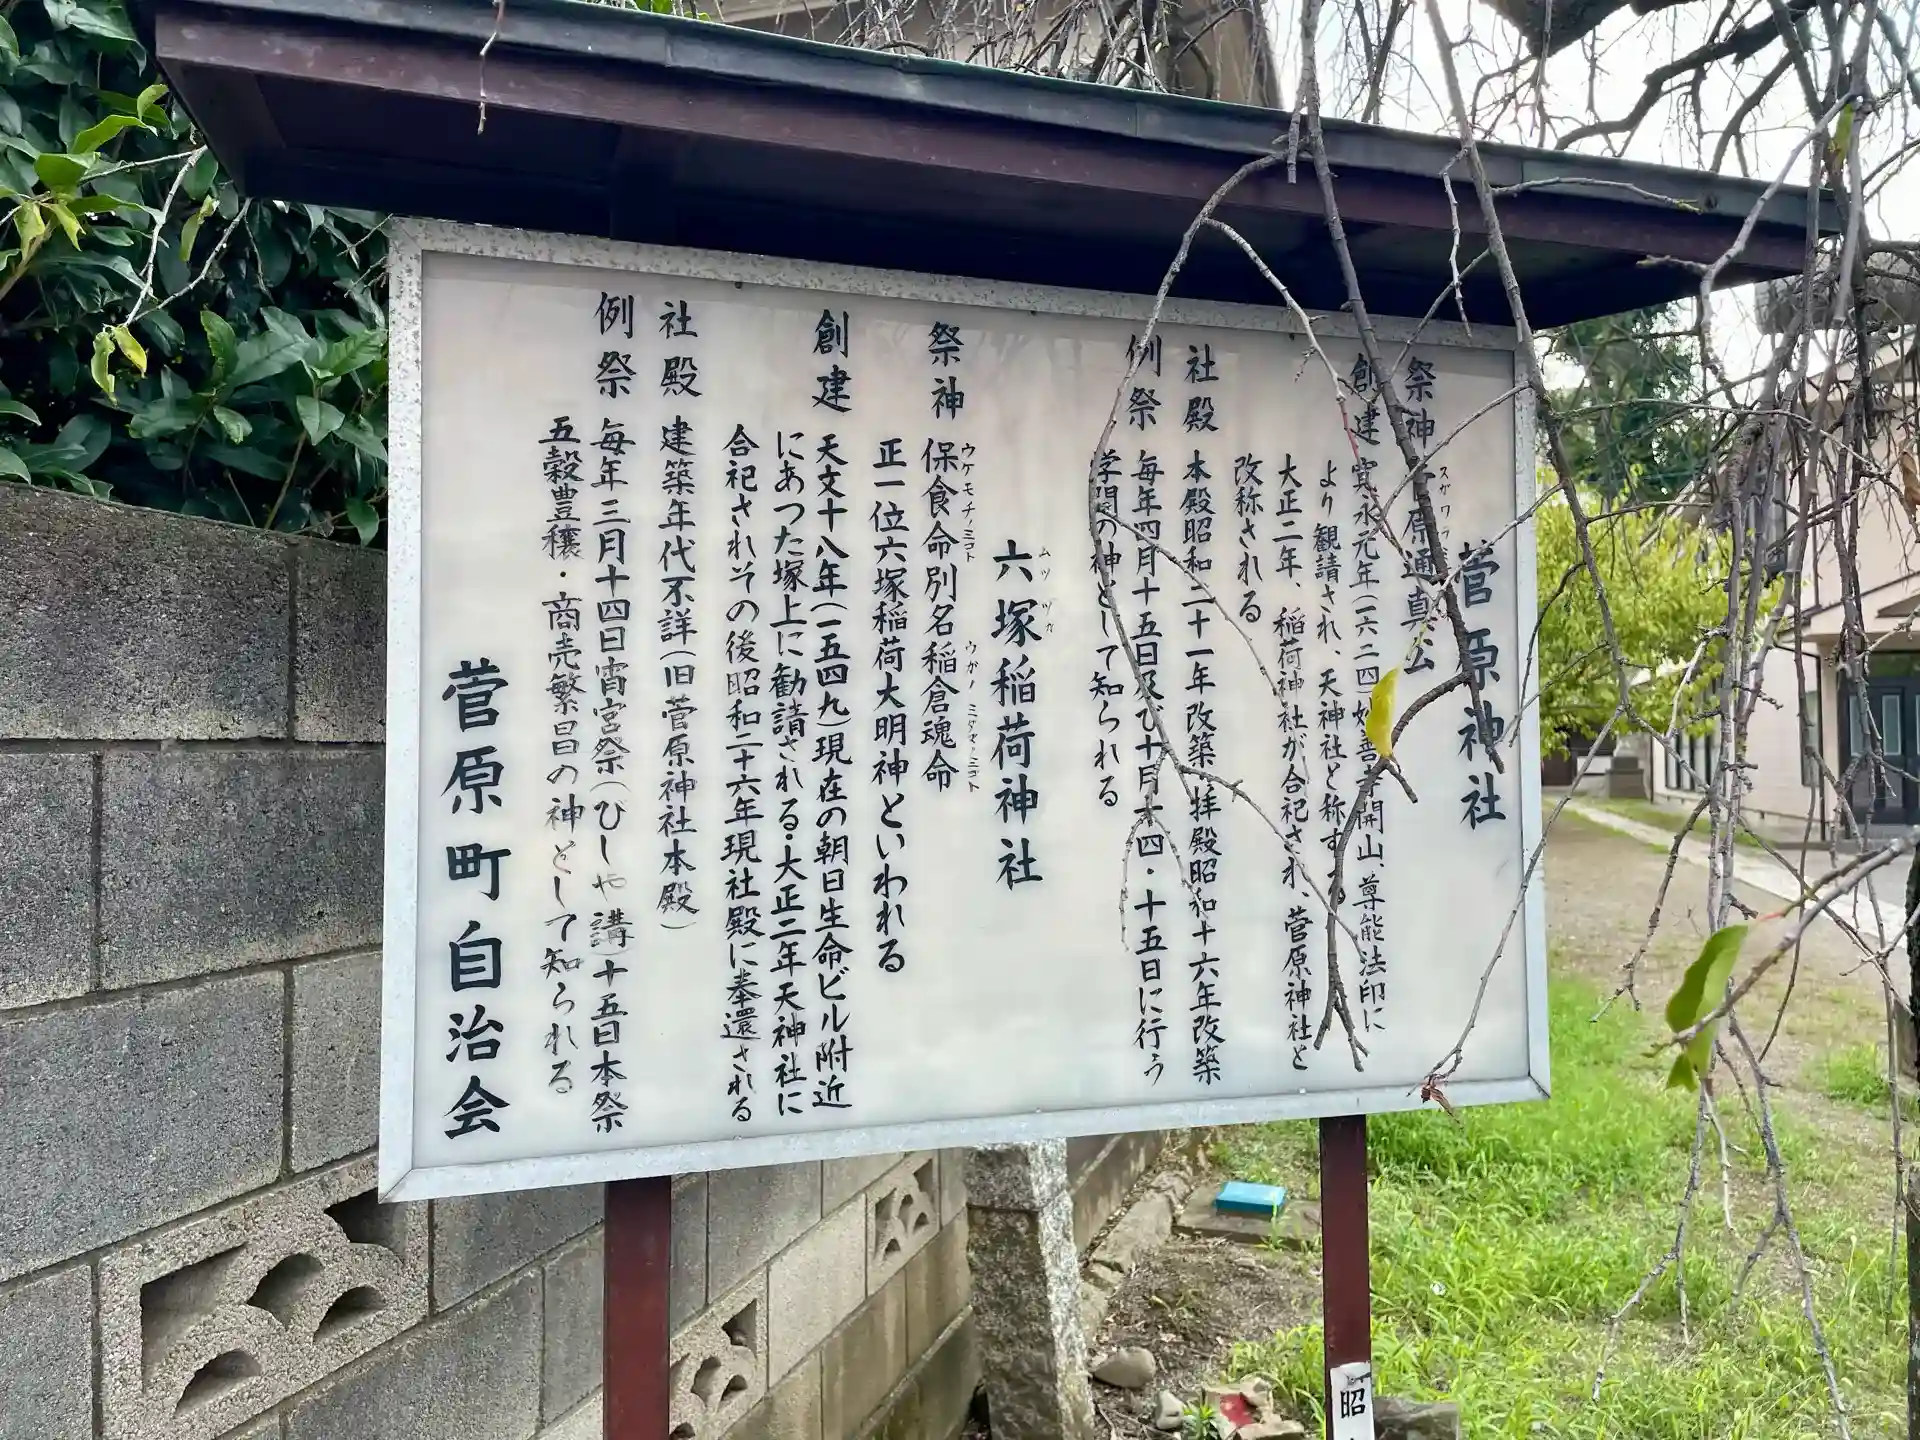 菅原神社
スガワラ
祭神 菅原通真公
創建 寛永元年(一六二四)妙善寺開山、尊能法印に
より観請され、天神社と称する
大正二年、稲荷神社が合祀され、菅原神社と
改称される
社殿 本殿昭和二十一年改築 拝殿昭和十六年改築
例祭 毎年四月十五日及び十月十四・十五日に行う
学問の神として知られる
ムツヅカ
六塚稲荷神社
ウケモチノミコト ウガノミタマノミコト
祭神 保食命別名稲倉魂命
正一位六塚稲荷大明神といわれる
創建 天文十八年(一五四九)現在の朝日生命ビル附近
にあつた塚上に勧請される・大正二年天神社に
合祀されその後昭和二十六年現社殿に奉還される
社殿 建築年代不詳(旧菅原神社本殿)
例祭 毎年三月十四日宵宮祭(ひしや講)十五日本祭
五穀豊穣・商売繁昌の神として知られる
菅原町自治会
昭